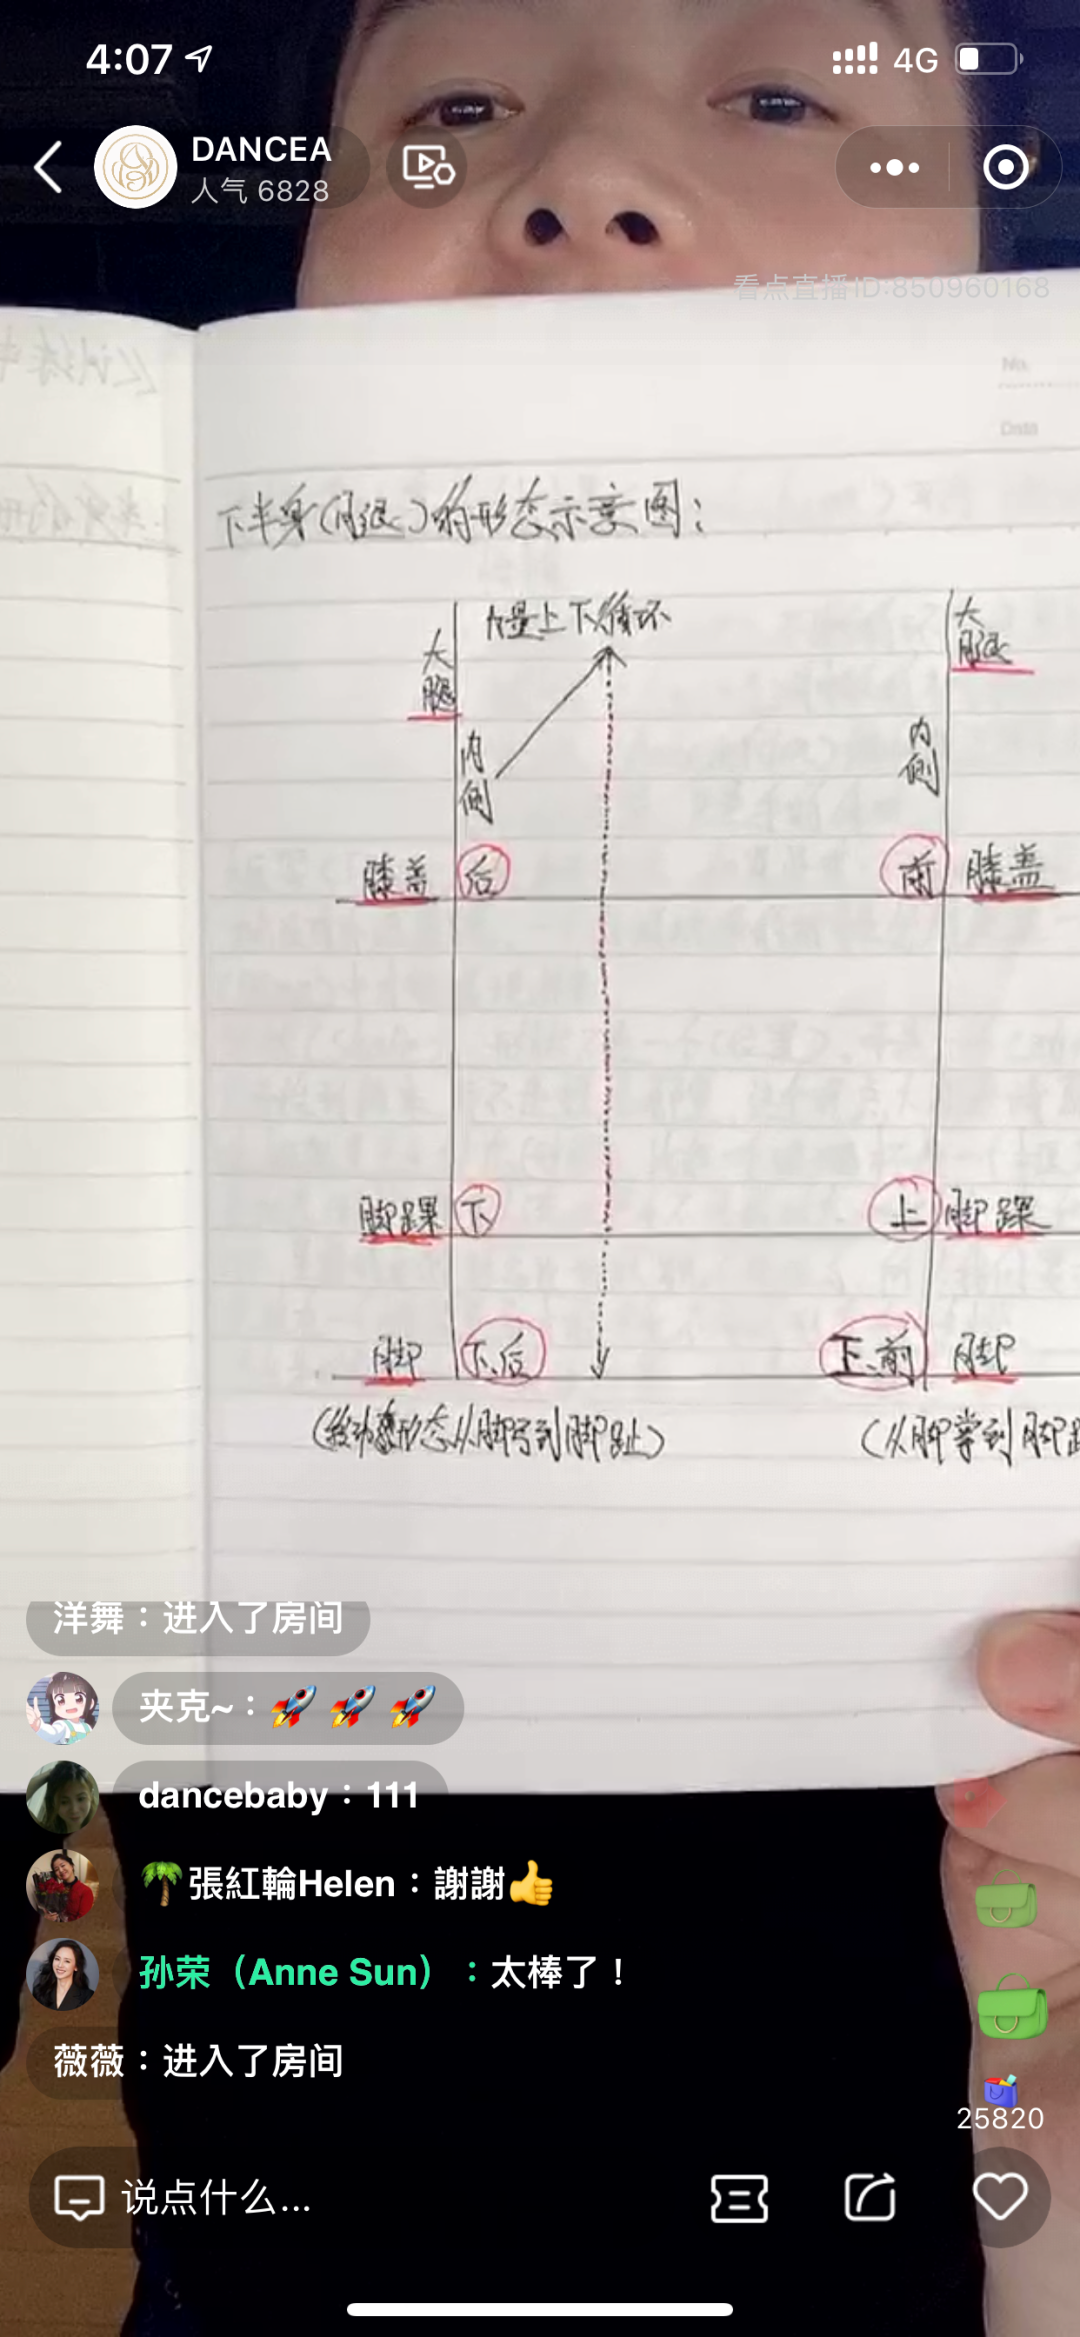 4:07
4G
DANCEA
人气 6828
看点直播ID:850960168
No.
Data
下半身(腿)的形态示意图:
力量上下循环
大腿
大腿
内侧
内侧
膝盖 后
前 膝盖
脚踝 下
上 脚踝
脚 下、后
下、前 脚
形态从脚弓到脚趾)
(从脚掌到脚
洋舞：进入了房间
夹克~：🚀 🚀 🚀
dancebaby：111
🌴張紅輪Helen：謝謝👍
孙荣（Anne Sun）：太棒了！
薇薇：进入了房间
25820
说点什么...